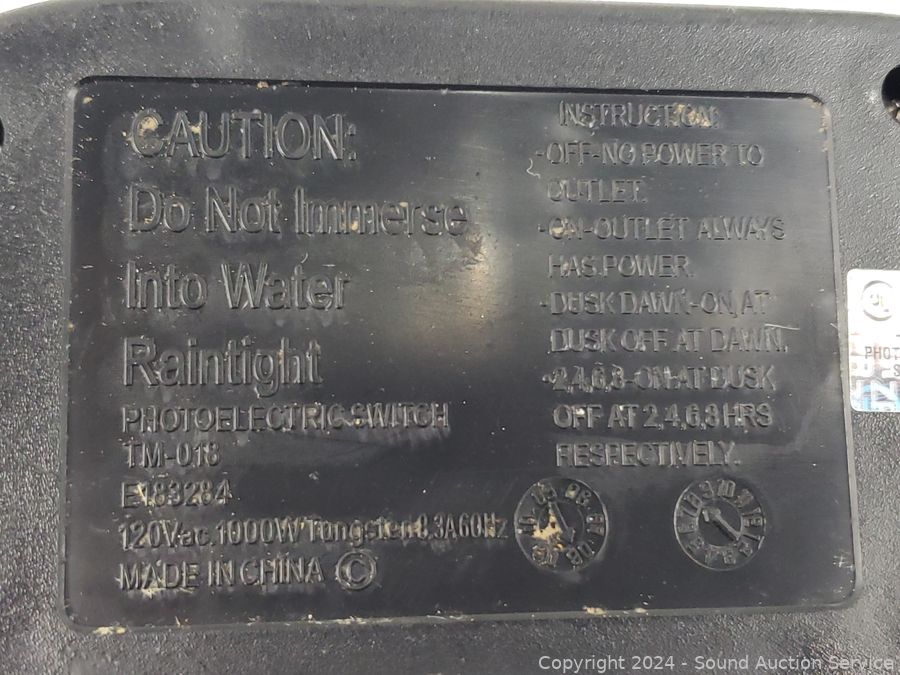 CAUTION:
Do Not Immerse
Into Water
Raintight
PHOTOELECTRIC SWITCH
TM-018
E183284
120Vac.1000W Tungsten 8.3A 60Hz
MADE IN CHINA ©
INSTRUCTION:
-OFF-NO POWER TO
OUTLET.
-ON-OUTLET ALWAYS
HAS POWER.
-DUSK DAWN-ON AT
DUSK OFF AT DAWN.
-2,4,6,8-ON AT DUSK
OFF AT 2,4,6,8 HRS
RESPECTIVELY.
UL
PHOT
Copyright 2024 - Sound Auction Service